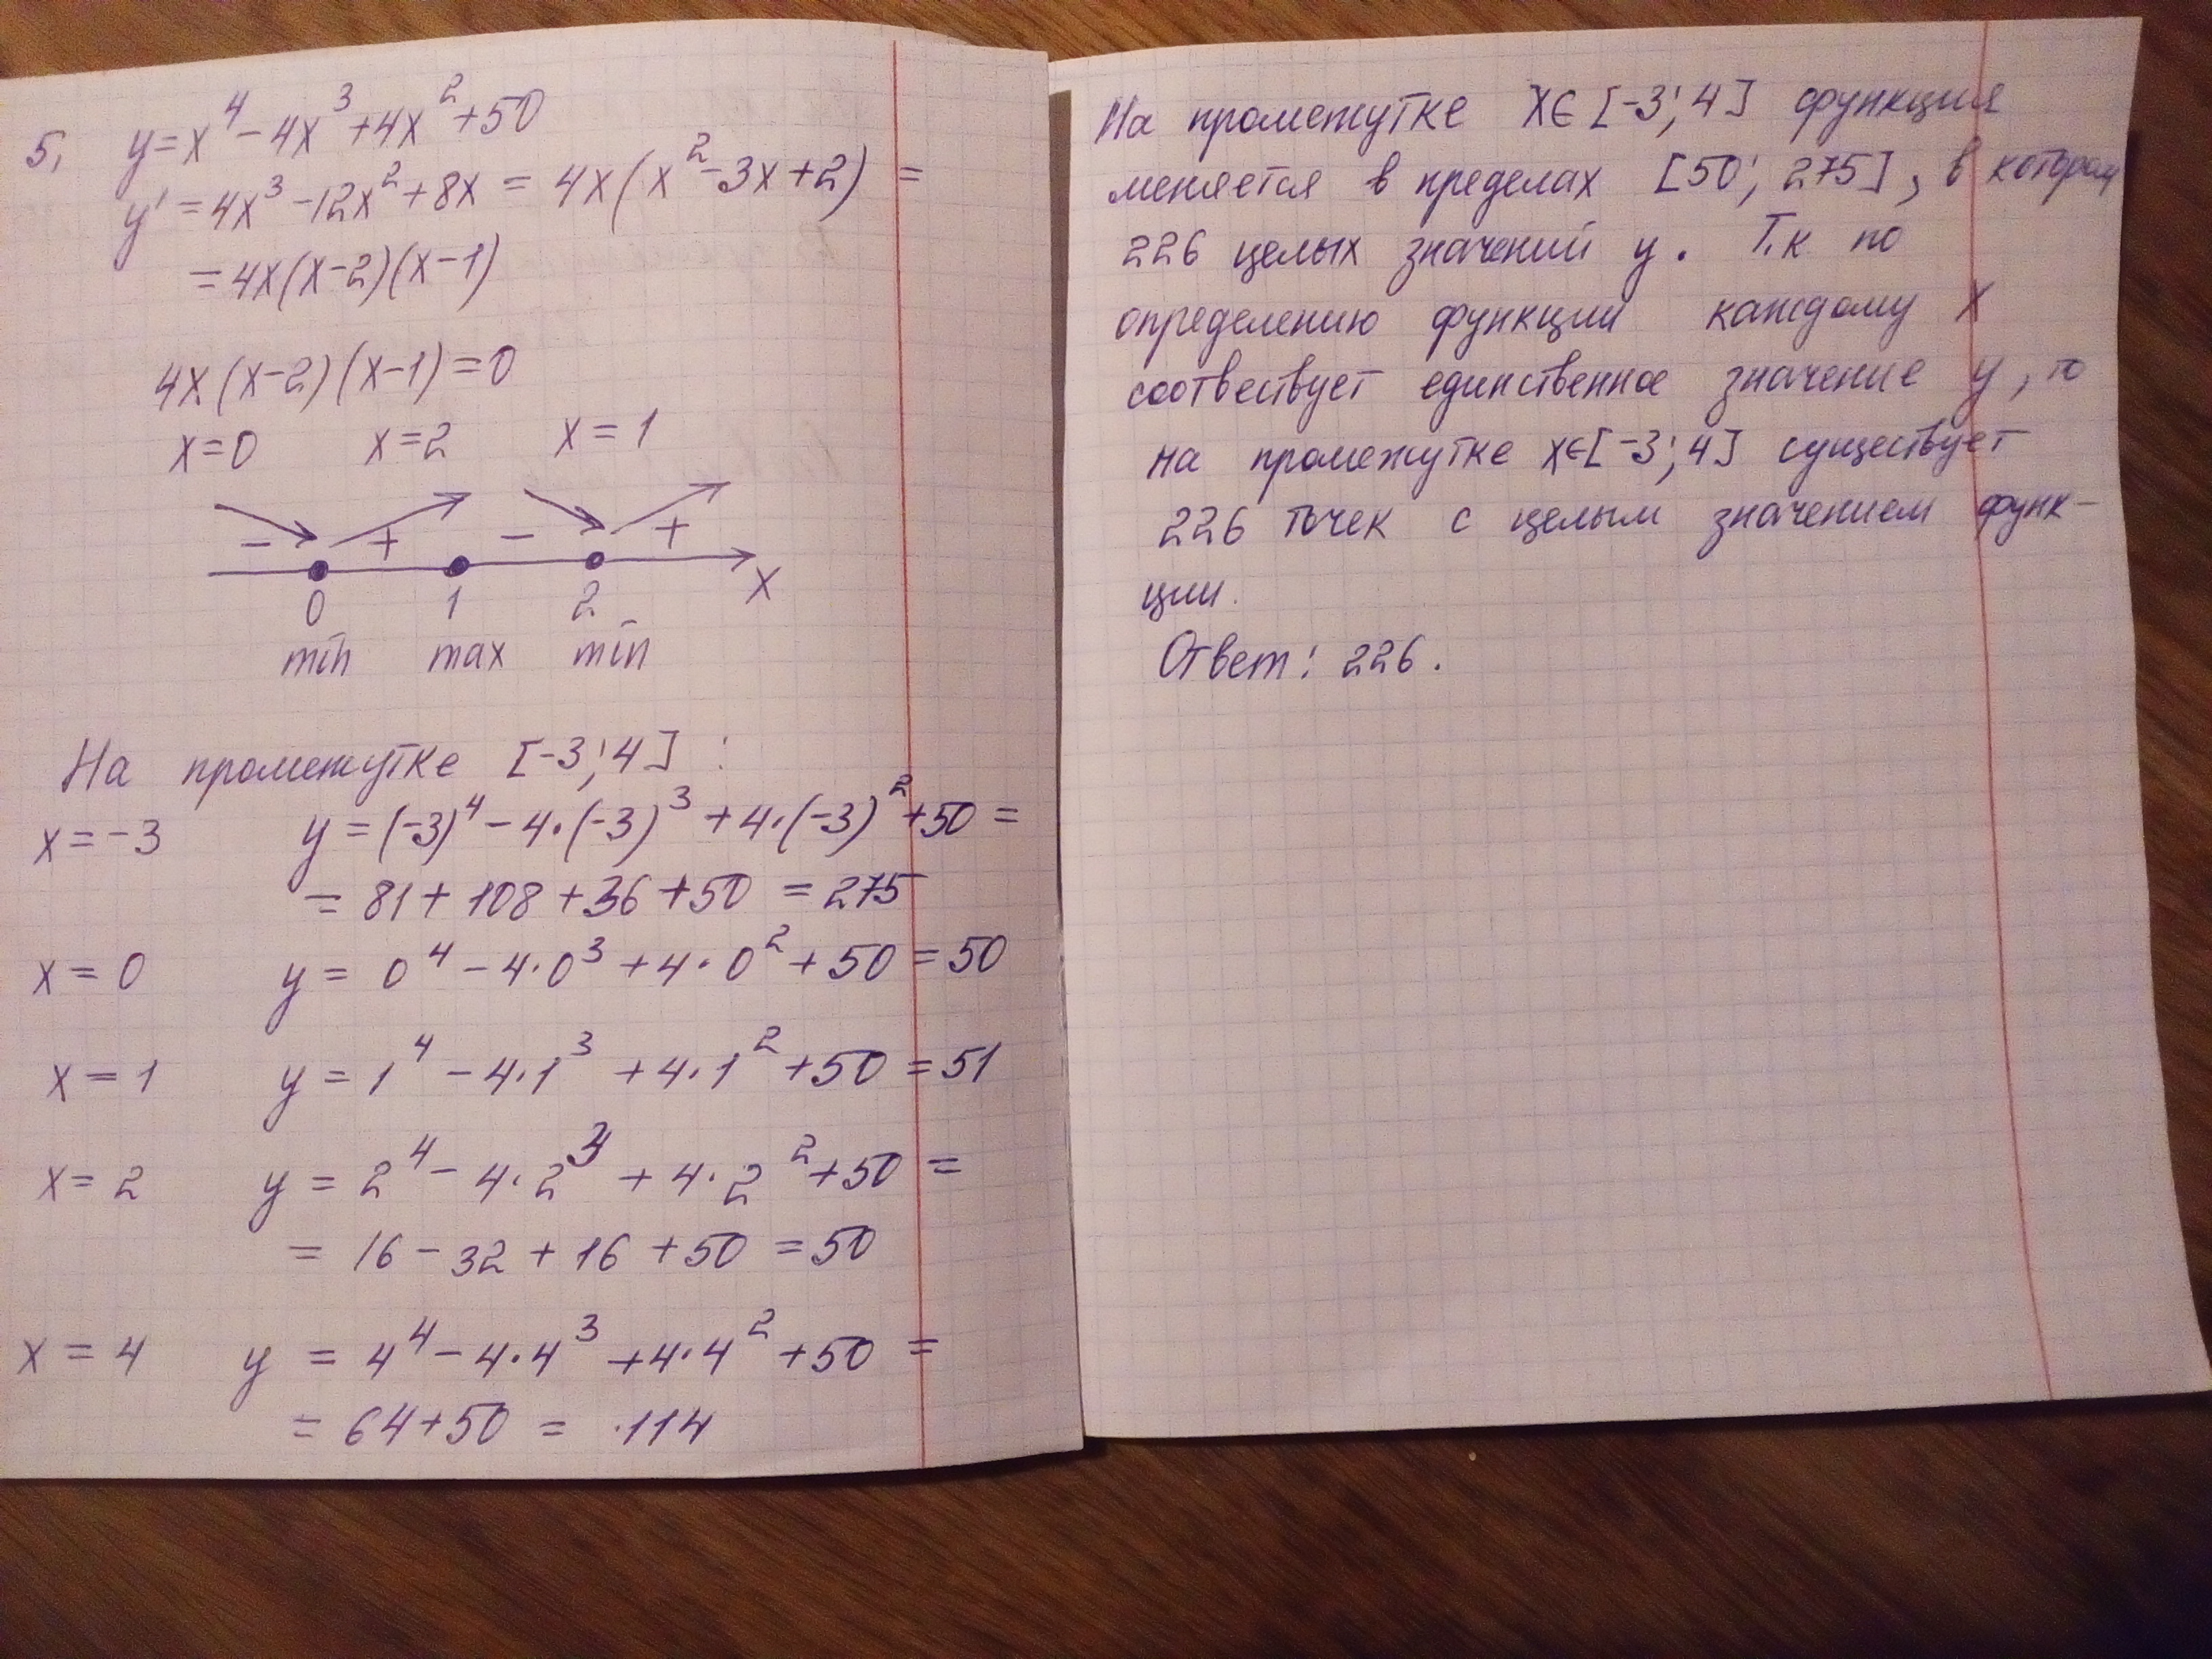 5. y=x⁴-4x³+4x²+50
y'=4x³-12x²+8x=4x(x²-3x+2)=
=4x(x-2)(x-1)
4x(x-2)(x-1)=0
x=0 x=2 x=1
- + - +
0 1 2 x
min max min
На промежутке [-3;4]:
x=-3 y=(-3)⁴-4·(-3)³+4·(-3)²+50=
=81+108+36+50=275
x=0 y=0⁴-4·0³+4·0²+50=50
x=1 y=1⁴-4·1³+4·1²+50=51
x=2 y=2⁴-4·2³+4·2²+50=
=16-32+16+50=50
x=4 y=4⁴-4·4³+4·4²+50=
=64+50=114
На промежутке x∈[-3;4] функция
меняется в пределах [50;275], в котором
226 целых значений y. Т.к по
определению функции каждому x
соотвествует единственное значение y, то
на промежутке x∈[-3;4] существует
226 точек с целым значением функ-
ции.
Ответ: 226.